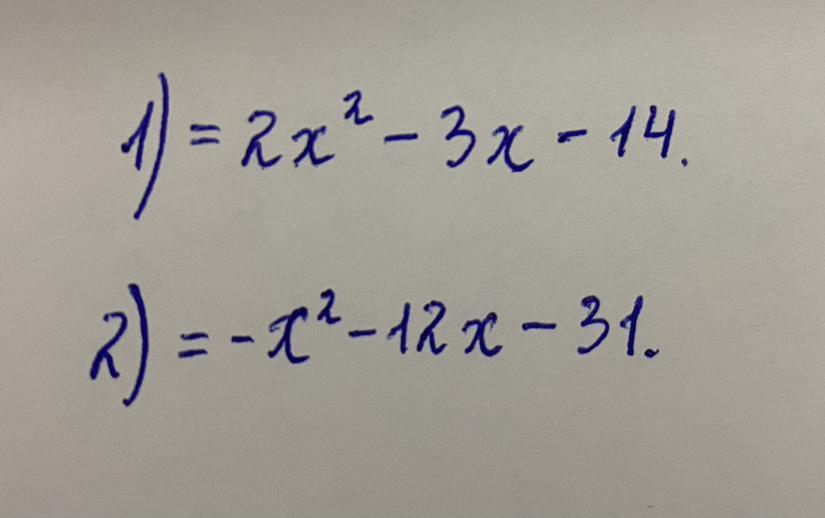 1) = 2x² - 3x - 14.
2) = -x² - 12x - 31.